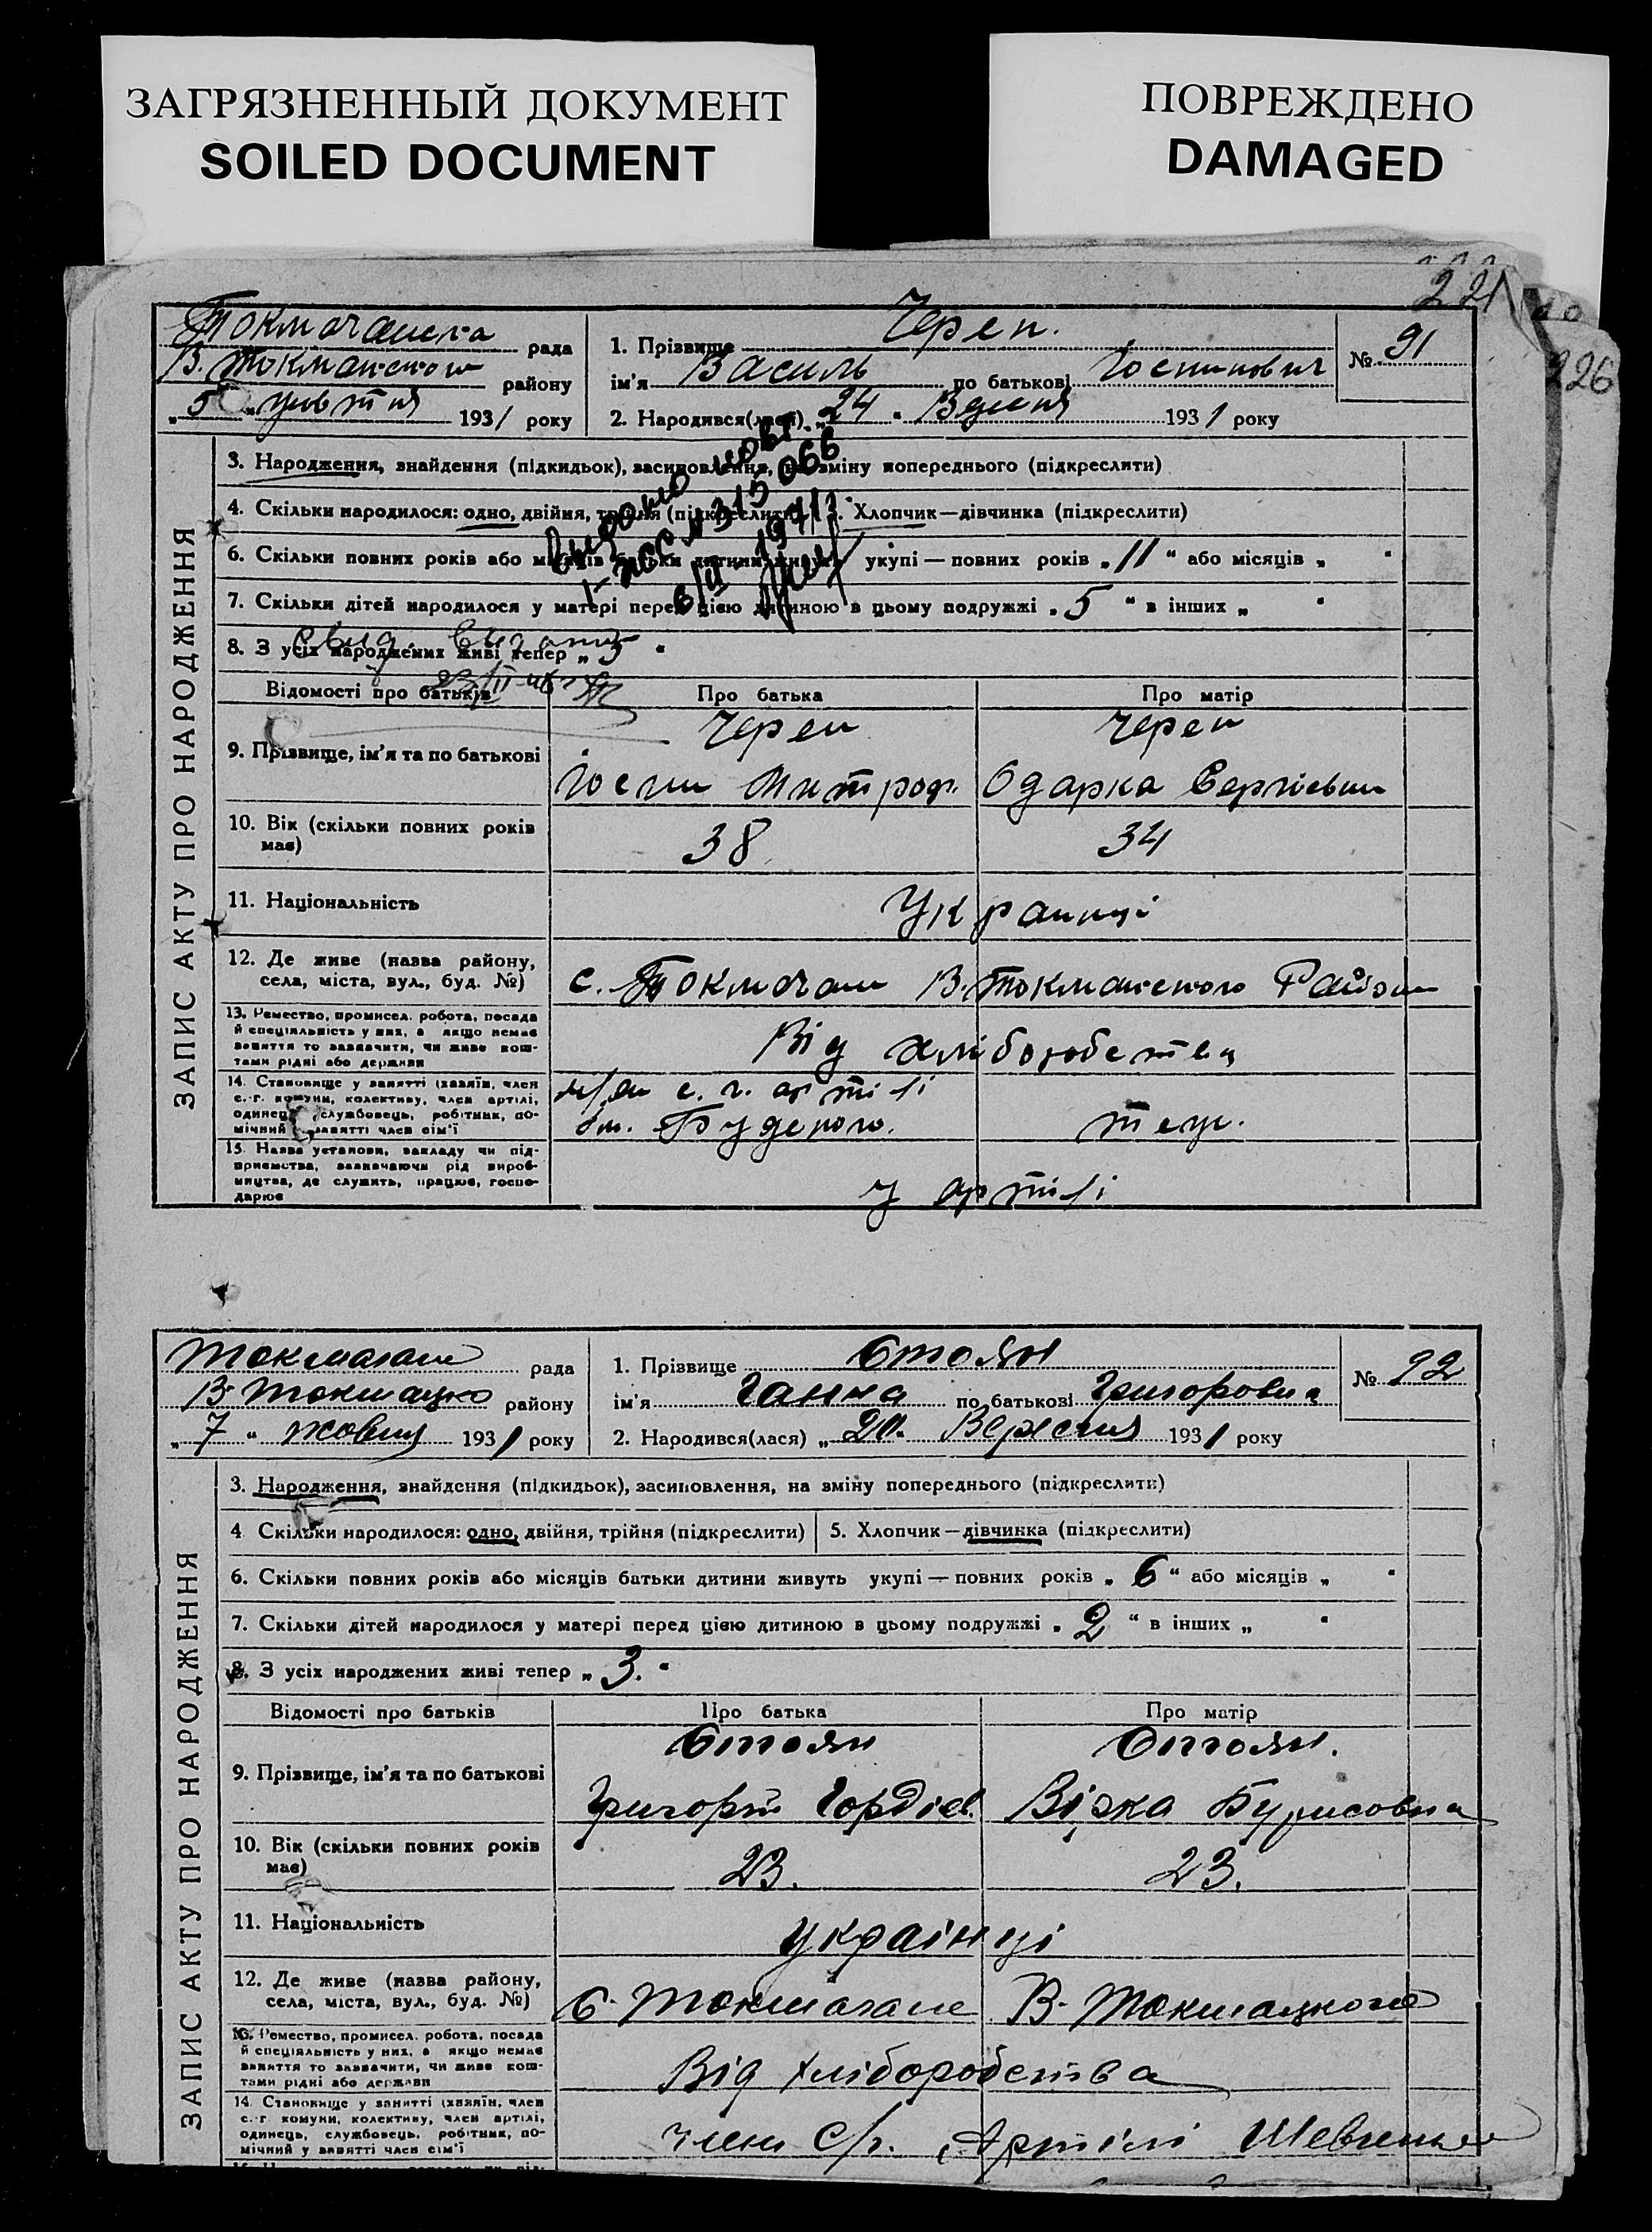 ЗАГРЯЗНЕННЫЙ ДОКУМЕНТ
SOILED DOCUMENT
ПОВРЕЖДЕНО
DAMAGED
221
226
Токмачанска рада
В. Токмакского району
„5“ жовтня 1931 року
1. Прізвище Череп.
ім'я Василь по батькові Йосипович
2. Народився(лася) „24“ Вересня 1931 року
№ 91
ЗАПИС АКТУ ПРО НАРОДЖЕННЯ
3. Народження, знайдення (підкидьок), засиновлення, на зміну попереднього (підкреслити)
4. Скільки народилося: одно, двійня, трійня (підкреслити) 5. Хлопчик—дівчинка (підкреслити)
6. Скільки повних років або місяців батьки дитини живуть укупі — повних років „11“ або місяців „ “
7. Скільки дітей народилося у матері перед цією дитиною в цьому подружжі „5“ в інших „ “
8. З усіх народжених живі тепер „5“
315066
Відомості про батьків Про батька Про матір
9. Прізвище, ім'я та по батькові
Череп Череп
Йосип Митроф. Одарка Сергіевна
10. Вік (скільки повних років має) 38 34
11. Національність Украинці
12. Де живе (назва району, села, міста, вул., буд. №) с. Токмачани В. Токмакского Району
13. Ремество, промисел. робота, посада
й спеціяльність у них, а якщо немає
заняття то зазначити, чи живе кош-
тами рідні або держави
Від хліборобства
14. Становище у занятті (хазяїн, член
с.-г. комуни, колективу, член артілі,
одинець, службовець, робітник, по-
мічний у занятті член сім'ї
с. г. артілі
Буденого.
15. Назва установи, закладу чи під-
приємства, зазначаючи рід вироб-
ництва, де служить, працює, госпо-
дарює
у артілі
Токмачани рада
В-Токмацко району
„7“ жовтня 1931 року
1. Прізвище Стоян
ім'я Ганна по батькові Григоровна
2. Народився(лася) Вересня 1931 року
№ 92
ЗАПИС АКТУ ПРО НАРОДЖЕННЯ
3. Народження, знайдення (підкидьок), засиновлення, на зміну попереднього (підкреслити)
4 Скільки народилося: одно, двійня, трійня (підкреслити) 5. Хлопчик—дівчинка (підкреслити)
6. Скільки повних років або місяців батьки дитини живуть укупі — повних років „6“ або місяців „ “
7. Скільки дітей народилося у матері перед цією дитиною в цьому подружжі „2“ в інших „ “
8. З усіх народжених живі тепер „3.“
Відомості про батьків Про батька Про матір
9. Прізвище, ім'я та по батькові
Стоян Стоян.
Григорій Гордієв.
10. Вік (скільки повних років має) 23. 23.
11. Національність українці
12. Де живе (назва району, села, міста, вул., буд. №) С. Токмачани В-Токмацкого
13. Ремество, промисел. робота, посада
й спеціяльність у них, а якщо немає
заняття то зазначити, чи живе кош-
тами рідні або держави
Від хліборобства
14. Становище у занятті (хазяїн, член
с.-г. комуни, колективу, член артілі,
одинець, службовець, робітник, по-
мічний у занятті член сім'ї
член С/г. Артілі Шевченко